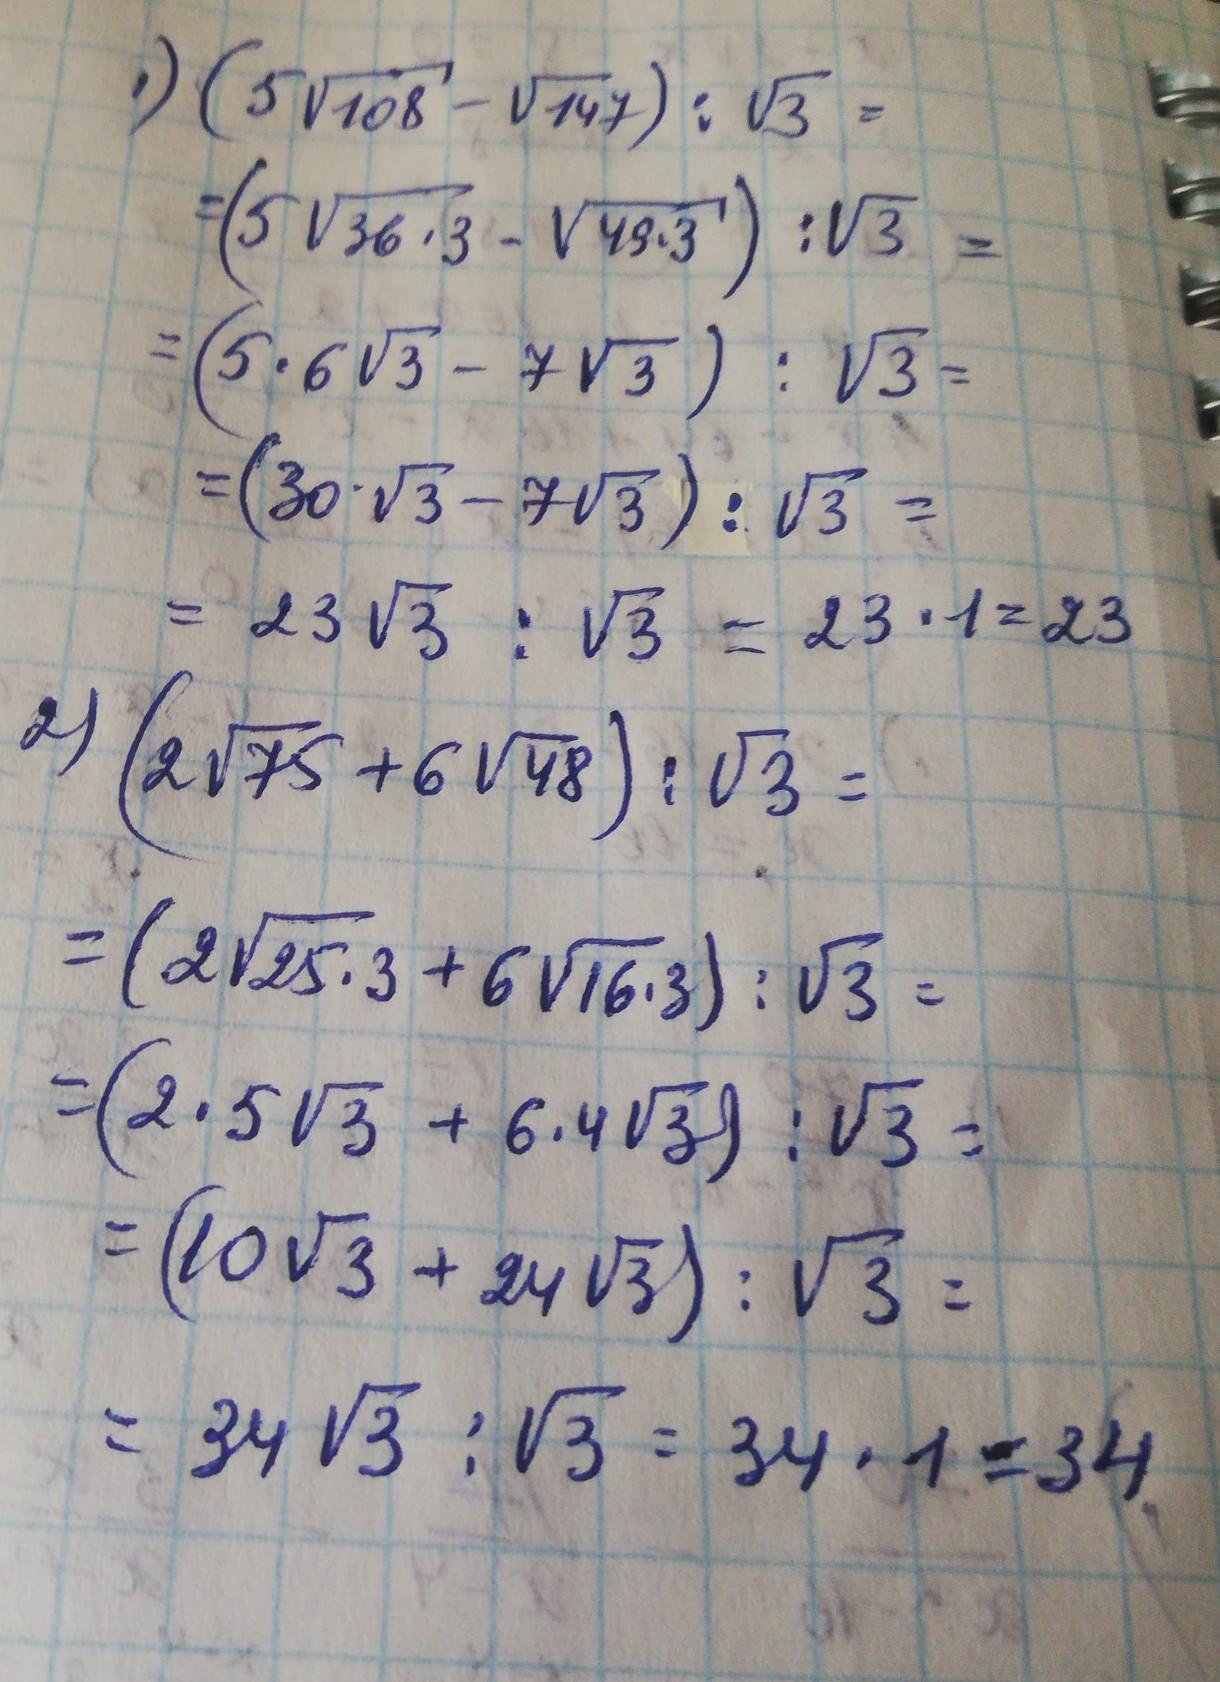 1) (5√108 - √147) : √3 =
=(5√36·3 - √49·3) : √3 =
=(5·6√3 - 7√3) : √3 =
=(30·√3 - 7√3) : √3 =
= 23√3 : √3 = 23·1=23
2) (2√75 + 6√48) : √3 =
=(2√25·3 + 6√16·3) : √3 =
=(2·5√3 + 6·4√3) : √3 =
=(10√3 + 24√3) : √3 =
= 34√3 : √3 = 34·1=34